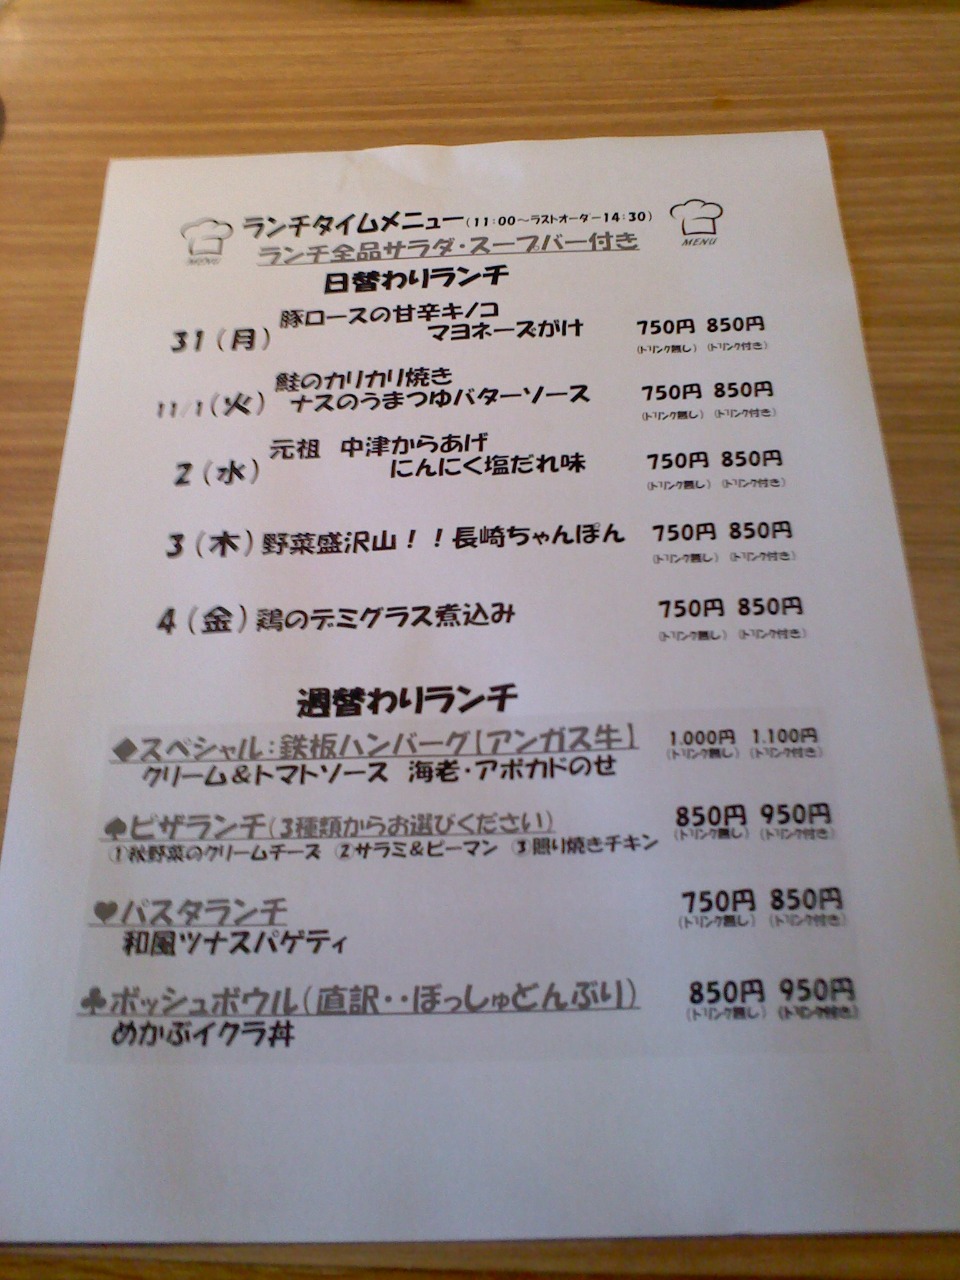 ランチタイムメニュー(11:00～ラストオーダー14:30)
MENU
MENU
ランチ全品サラダ・スープバー付き
日替わりランチ
31(月) 豚ロースの甘辛キノコ
マヨネーズがけ 750円 850円
(ドリンク無し) (ドリンク付き)
鮭のカリカリ焼き
11/1(火) ナスのうまつゆバターソース 750円 850円
(ドリンク無し) (ドリンク付き)
元祖 中津からあげ
2(水) にんにく塩だれ味 750円 850円
(ドリンク無し) (ドリンク付き)
3(木) 野菜盛沢山！！長崎ちゃんぽん 750円 850円
(ドリンク無し) (ドリンク付き)
4(金) 鶏のデミグラス煮込み 750円 850円
(ドリンク無し) (ドリンク付き)
週替わりランチ
◆スペシャル：鉄板ハンバーグ【アンガス牛】 1.000円 1.100円
(ドリンク無し) (ドリンク付き)
クリーム＆トマトソース 海老・アボカドのせ
♠ピザランチ(3種類からお選びください) 850円 950円
(ドリンク無し) (ドリンク付き)
①秋野菜のクリームチーズ ②サラミ＆ピーマン ③照り焼きチキン
♥パスタランチ 750円 850円
(ドリンク無し) (ドリンク付き)
和風ツナスパゲティ
♣ボッシュボウル(直訳・・ぼっしゅどんぶり) 850円 950円
(ドリンク無し) (ドリンク付き)
めかぶイクラ丼